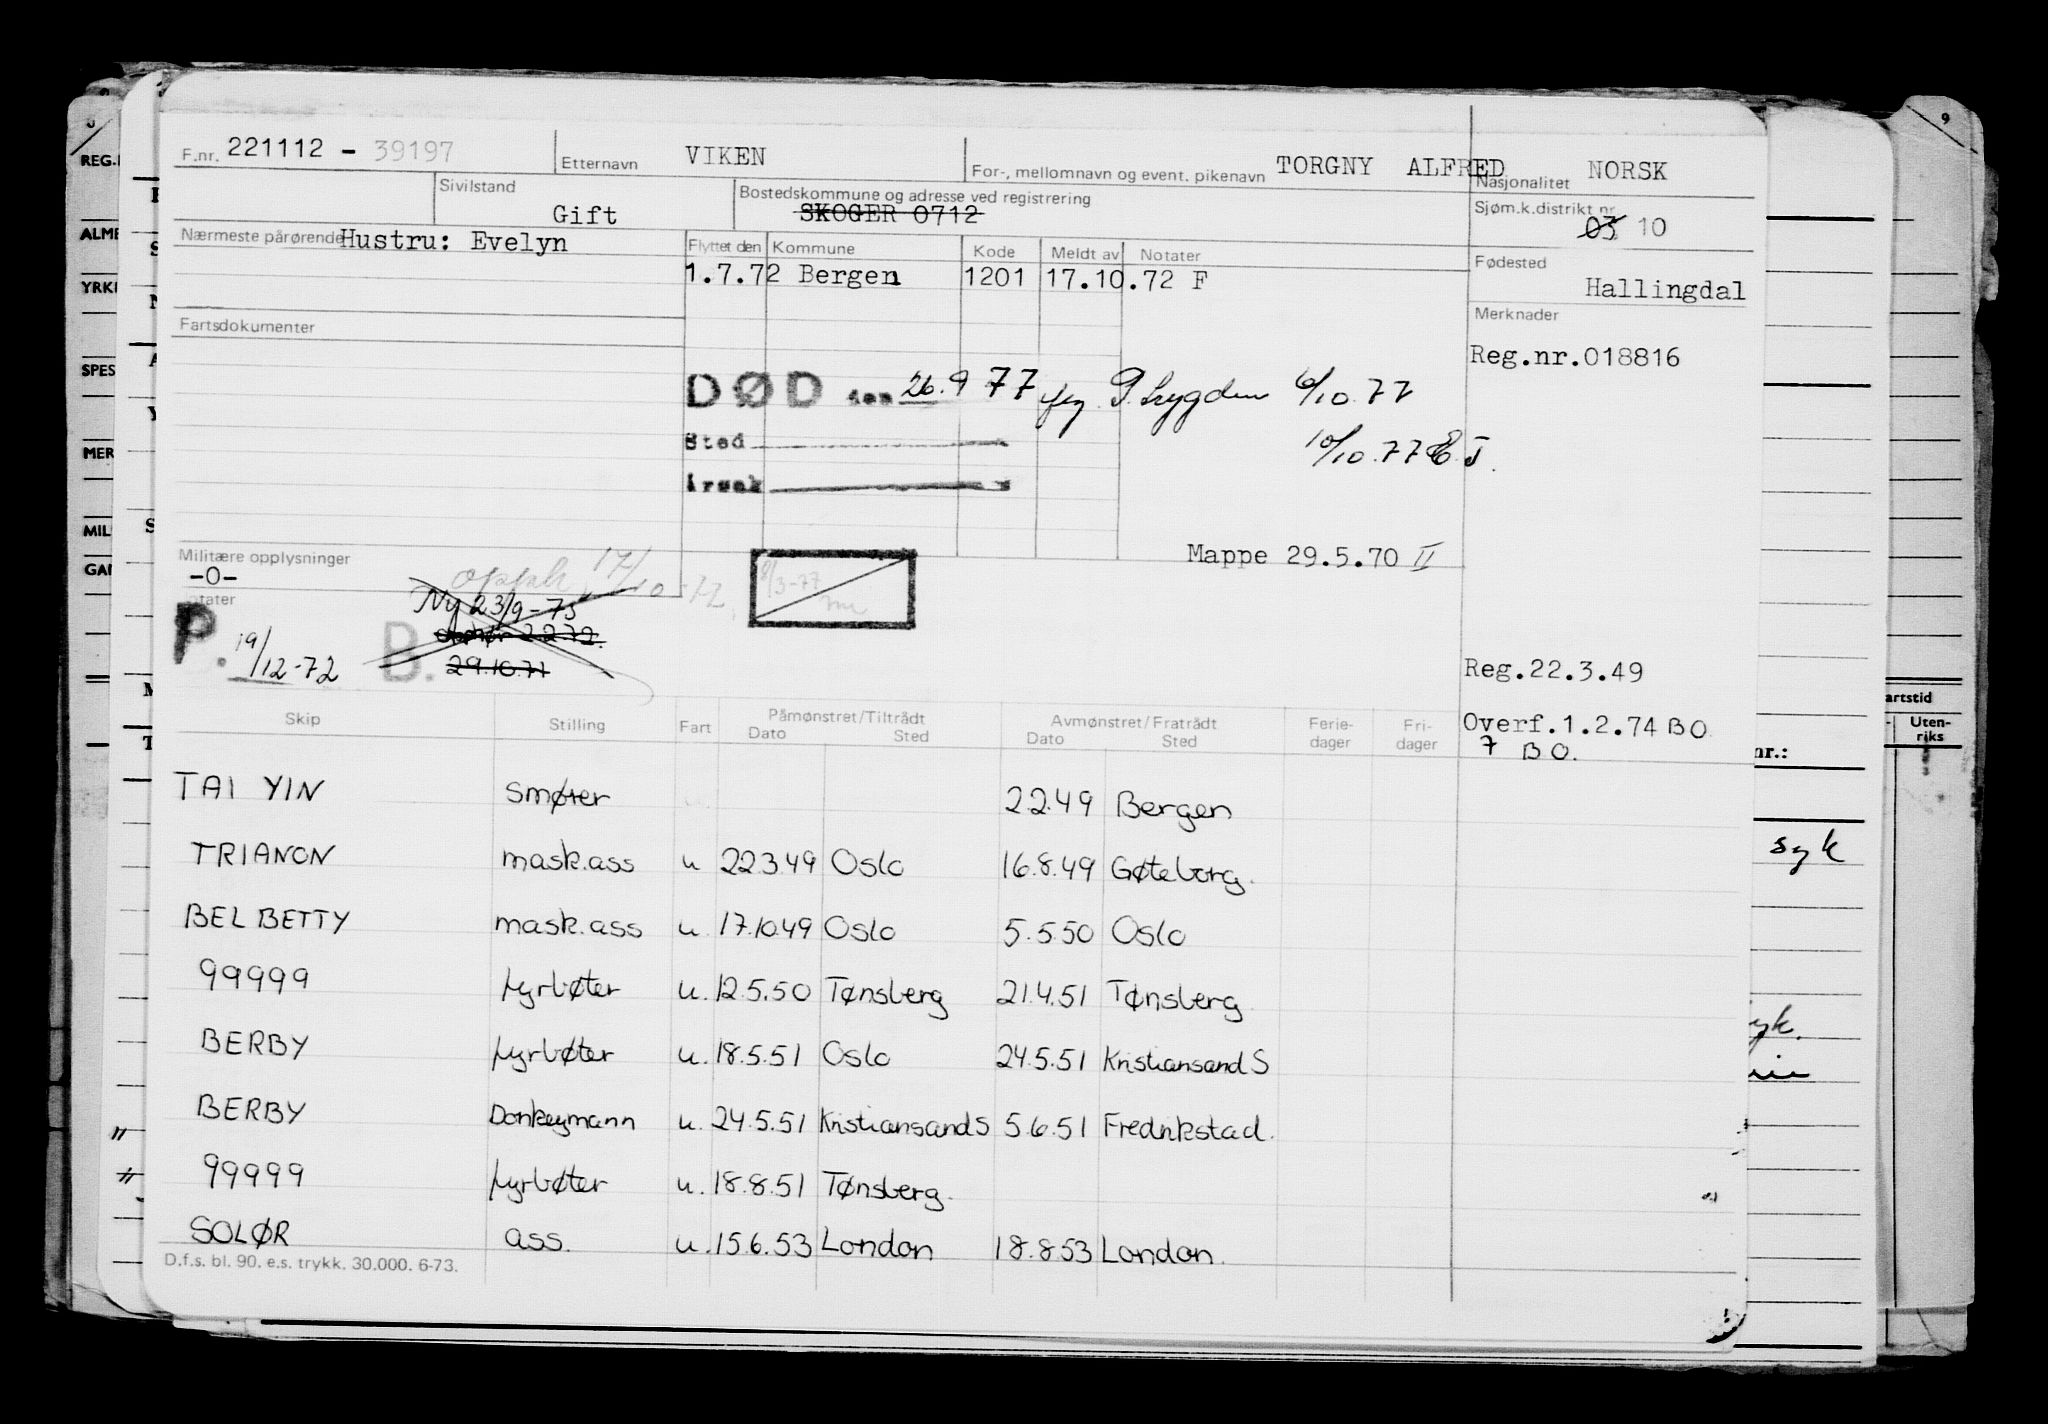 F.nr. 221112 - 39197 Etternavn VIKEN For-, mellomnavn og event. pikenavn TORGNY ALFRED Nasjonalitet NORSK
Sivilstand Gift Bostedskommune og adresse ved registrering SKOGER 0712 Sjøm.k.distrikt nr. 03 10
Nærmeste pårørende Hustru: Evelyn Flyttet den Kommune Kode Meldt av Notater Fødested
1.7.72 Bergen 1201 17.10.72 F Hallingdal
Fartsdokumenter Merknader
Reg.nr.018816
DØD den 26.9 77 6/10.77
Sted 10/10.77
Årsak
Mappe 29.5.70 II
Militære opplysninger
-0-
17/10-72
Ny 23/9-75
8/3-77
opphør 2.2.72.
P. 19/12-72 B. 29.10.71
Reg.22.3.49
Overf.1.2.74 BO
7 BO.
Skip Stilling Fart Påmønstret/Tiltrådt Dato Sted Avmønstret/Fratrådt Dato Sted Ferie-dager Fri-dager
TAI YIN smører 2.2.49 Bergen
TRIANON mask.ass u 22.3.49 Oslo 16.8.49 Gøteborg.
BELBETTY mask.ass u. 17.10.49 Oslo 5.5.50 Oslo
99999 fyrbøter u. 12.5.50 Tønsberg 21.4.51 Tønsberg
BERBY fyrbøter u. 18.5.51 Oslo 24.5.51 Kristiansand S
BERBY Donkeymann u. 24.5.51 Kristiansand S 5.6.51 Fredrikstad.
99999 fyrbøter u. 18.8.51 Tønsberg.
SOLØR ass. u. 15.6.53 London 18.8.53 London.
D.f.s. bl. 90. e.s. trykk. 30.000. 6-73.
9
artstid
Uten-
riks
nr.:
syk
REG.
ALME
YRK
SPES
MER
MIL